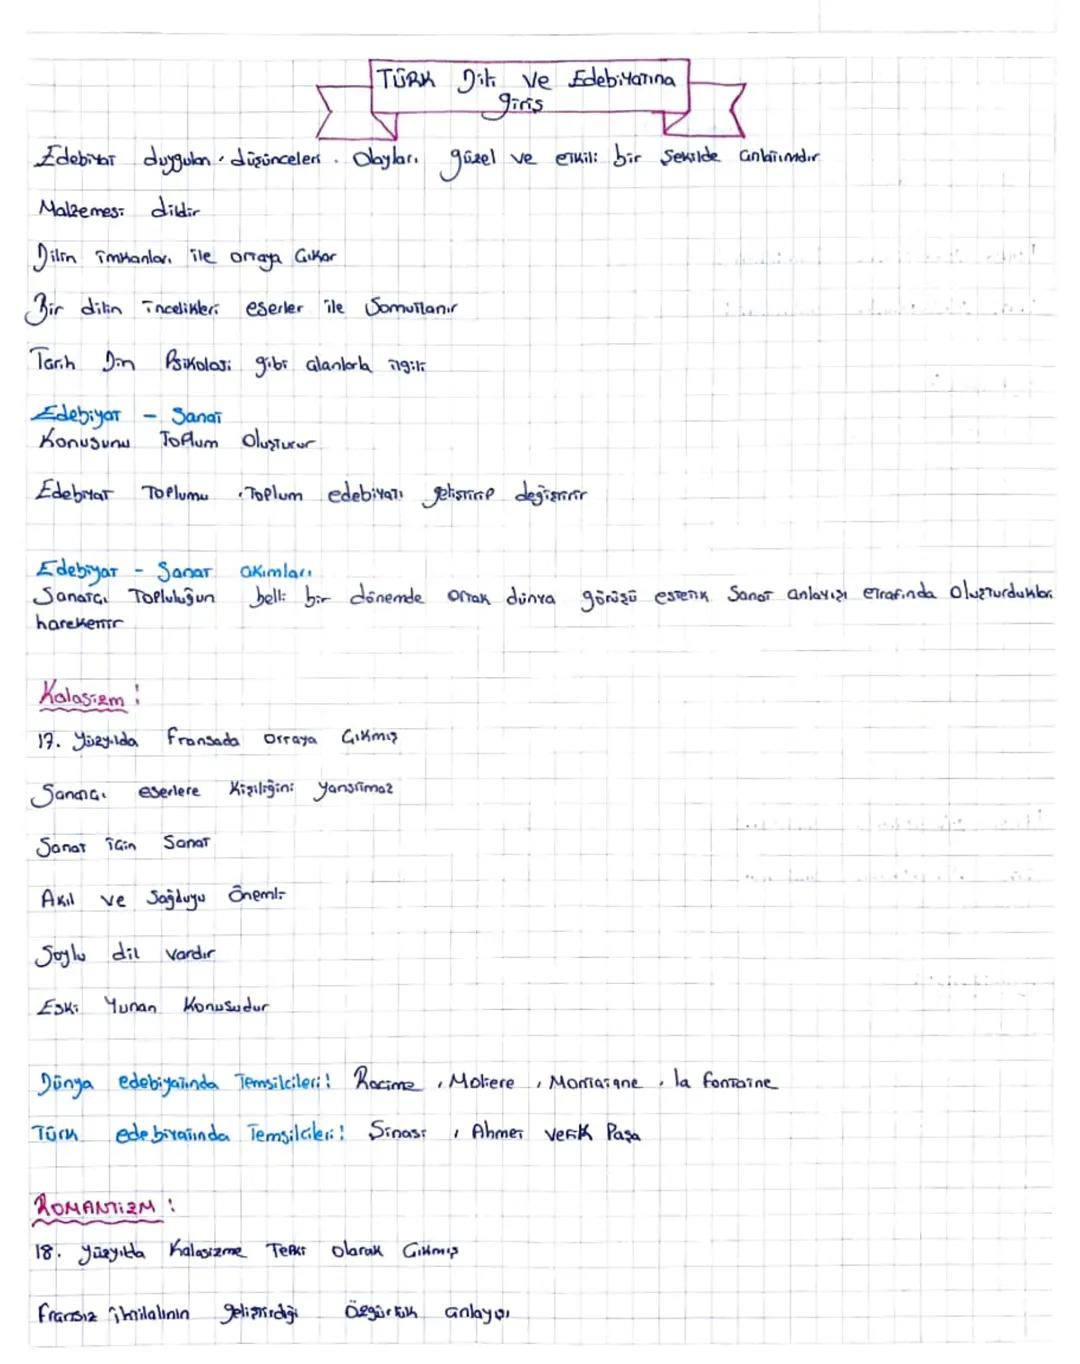 TÜRK Dili ve Edebiyatına
giriş
Edebiyat duyguları, düşünceleri, Olayları güzel ve etkili bir şekilde anlatımıdır
Malzemesi dildir
Dilin imkanları ile ortaya Çıkar
Bir dilin incelikleri eserler ile Somutlanır
Tarih Din Psikoloji gibi alanlarla ilgili
Edebiyat - Sanat
Konusunu Toplum Oluşturur
Edebiyat Toplumu, Toplum edebiyatı geliştirip değiştirir
Edebiyat - Sanat akımları
Sanatçı Topluluğun belli bir dönemde ortak dünya görüşü estetik Sanat anlayışı etrafında Oluşturdukları
harekettir
Kalasizm:
17. Yüzyılda Fransada Ortaya Çıkmış
Sanatçı eserlere Kişiliğini yansıtmaz
Sanat için Sanat
Akıl ve Sağduyu Önemli
Soylu dil vardır
Eski Yunan Konusudur
Dünya edebiyatında Temsilcileri: Racine, Moliere, Montaigne, la fontaine
Türk edebiyatında Temsilcileri: Şinasi, Ahmet Vefik Paşa
ROMANTİZM:
18. yüzyılda Kalasizme Tepki Olarak Çıkmış
Fransız ihtilalinin geliştirdiği Özgürlük anlayışı